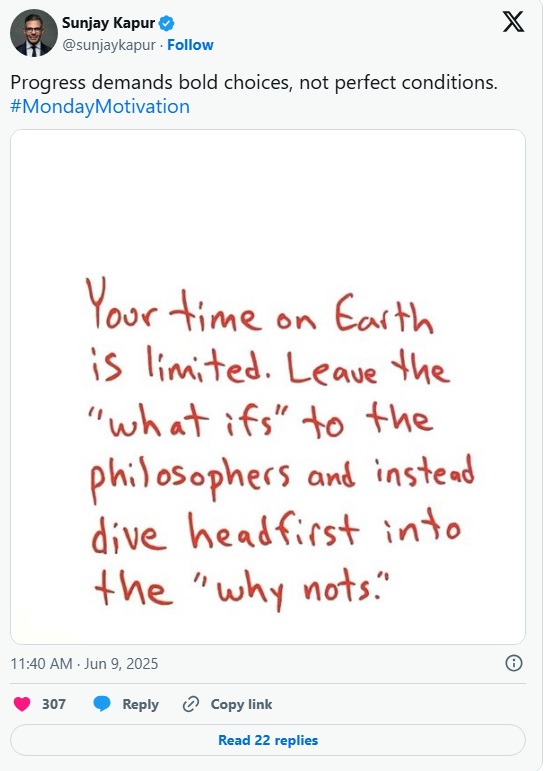 Sunjay Kapur
@sunjaykapur · Follow
Progress demands bold choices, not perfect conditions.
#MondayMotivation
Your time on Earth
is limited. Leave the
"what ifs" to the
philosophers and instead
dive headfirst into
the "why nots."
11:40 AM · Jun 9, 2025
307 Reply Copy link
Read 22 replies